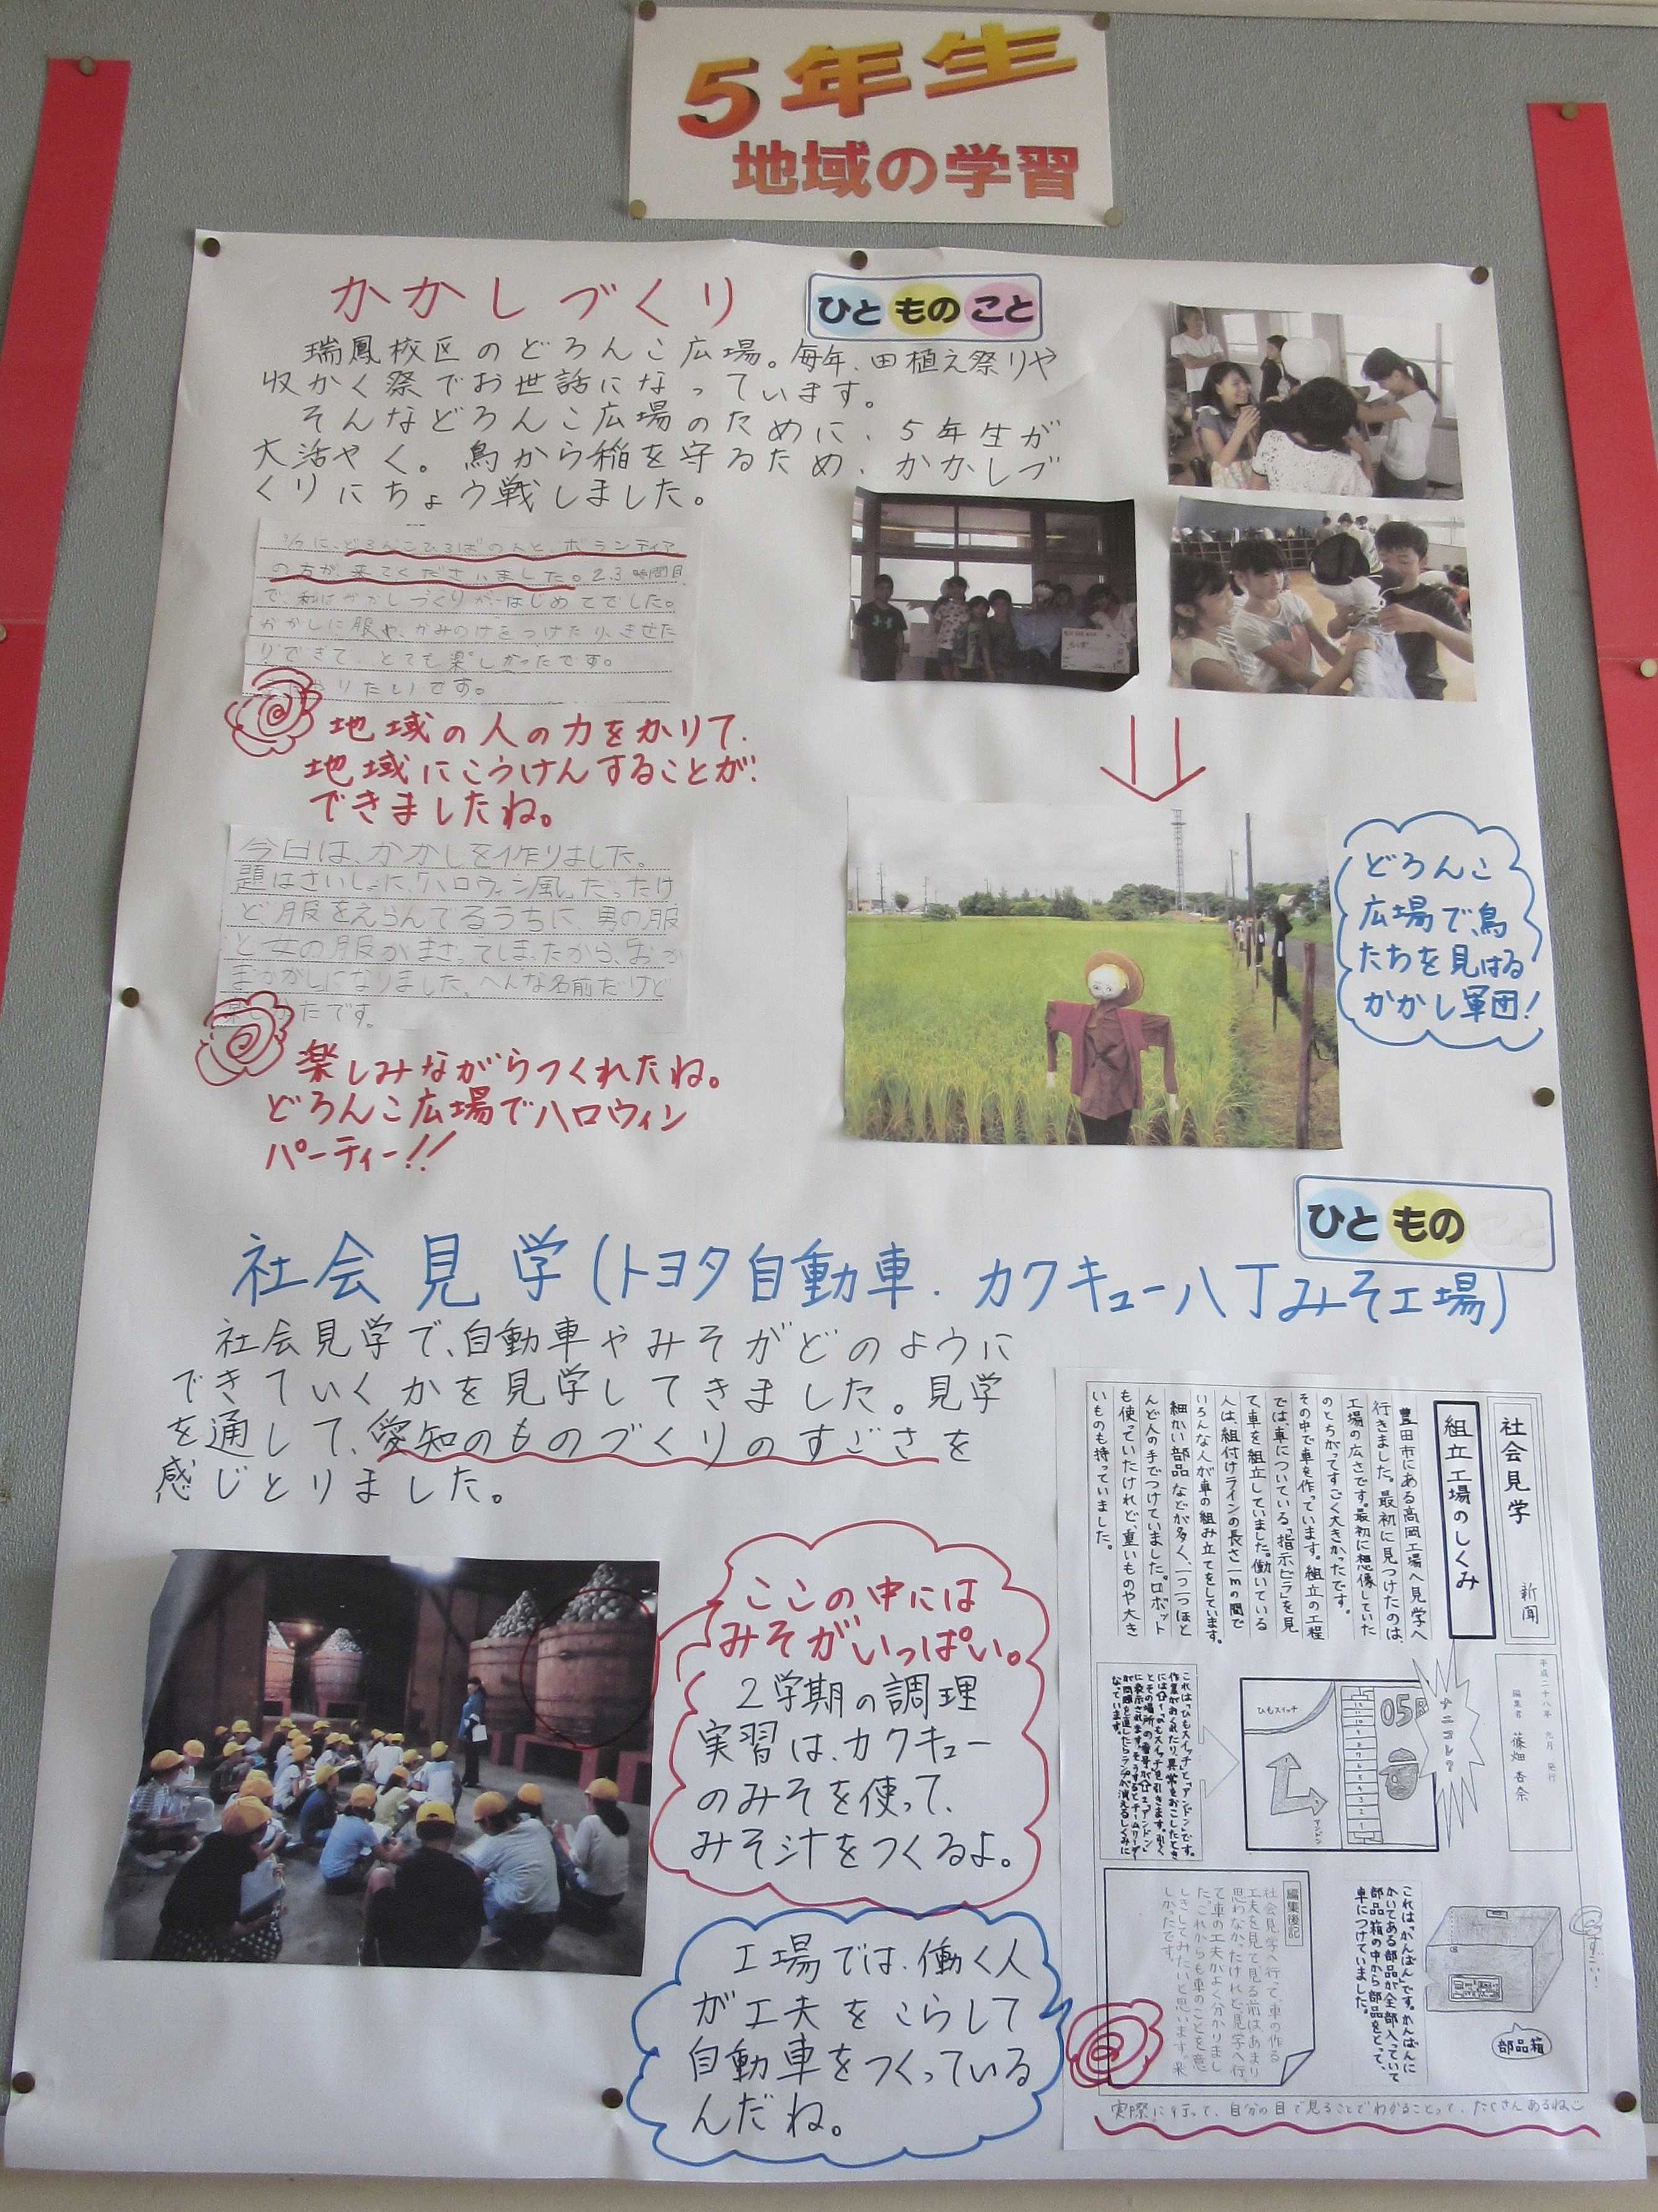 5年生
地域の学習
かかしづくり
ひと もの こと
瑞鳳校区のどろんこ広場。毎年、田植え祭りや
収かく祭でお世話になっています。
そんなどろんこ広場のために、5年生が
大活やく。鳥から稲を守るため、かかしづ
くりにちょう戦しました。
に、どろんこひろばの人と、ボランティア
の方が、来てくださいました。2.3時間目
で、私はかかしづくりがはじめてでした。
かかしに服や、かみのけをつけたり、きせた
りできて、とても楽しかったです。
やりたいです。
地域の人の力をかりて、
地域にこうけんすることが
できましたね。
今日は、かかしを作りました。
題はさいしょに、「ハロウィン風」だったけ
ど服をえらんでるうちに、男の服
と女の服がまざってしまったから、おか
まかかしになりました。へんな名前だけど
楽しかったです。
楽しみながらつくれたね。
どろんこ広場でハロウィン
パーティー!!
どろんこ
広場で、鳥
たちを見はる
かかし軍団!
ひと もの こと
社会見学(トヨタ自動車、カクキュー八丁みそ工場)
社会見学で、自動車やみそがどのように
できていくかを見学してきました。見学
を通して、愛知のものづくりのすごさを
感じとりました。
ここの中には
みそがいっぱい。
2学期の調理
実習は、カクキュー
のみそを使って、
みそ汁をつくるよ。
工場では、働く人
が工夫をこらして
自動車をつくっている
んだね。
社会見学 新聞
平成二十八年 九月 発行
編集者 篠畑 杏奈
組立工場のしくみ
豊田市にある高岡工場へ見学へ
行きました。最初に見つけたのは、
工場の広さです。最初に想像していた
のとちがってすごく大きかったです。
その中で車を作っています。組立の工程
では、車についている「指示ビラ」を見
て車を組立していました。働いている
人は、組付けラインの長さ一mの間で
いろんな人が車の組み立てをしています。
細かい部品などが多く、一つ一つほと
んど人の手でつけていました。ロボット
も使っていたけれど、重いものや大き
いものも持っていました。
ナニコレ?
ひもスイッチ
05R
アンドン
これは「ひもスイッチ」と「アンドン」です。
作業がおくれたり、異常をおこしたとき
になっています。
これは、「かんばん」です。かんばんに
かいてある部品が全部入っていて
部品箱の中から部品をとって、
車につけていました。
部品箱
編集後記
社会見学へ行って、車の作る
工夫を見て、見る前はあまり
思わなかったけれど、見学へ行っ
て車の工夫がよく分かりまし
た。これからも車のことを意
しきしてみたいと思います。楽
しかったです。
すごい!
実際に行って、自分の目で見ることでわかることって、たくさんあるね